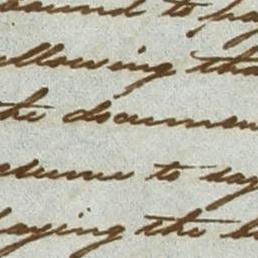 bound to pay
allowing tha
the documen
esume to say
laying the b